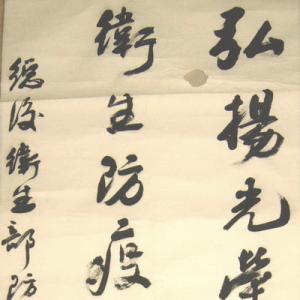 弘揚光榮
衛生防疫
總後衛生部防